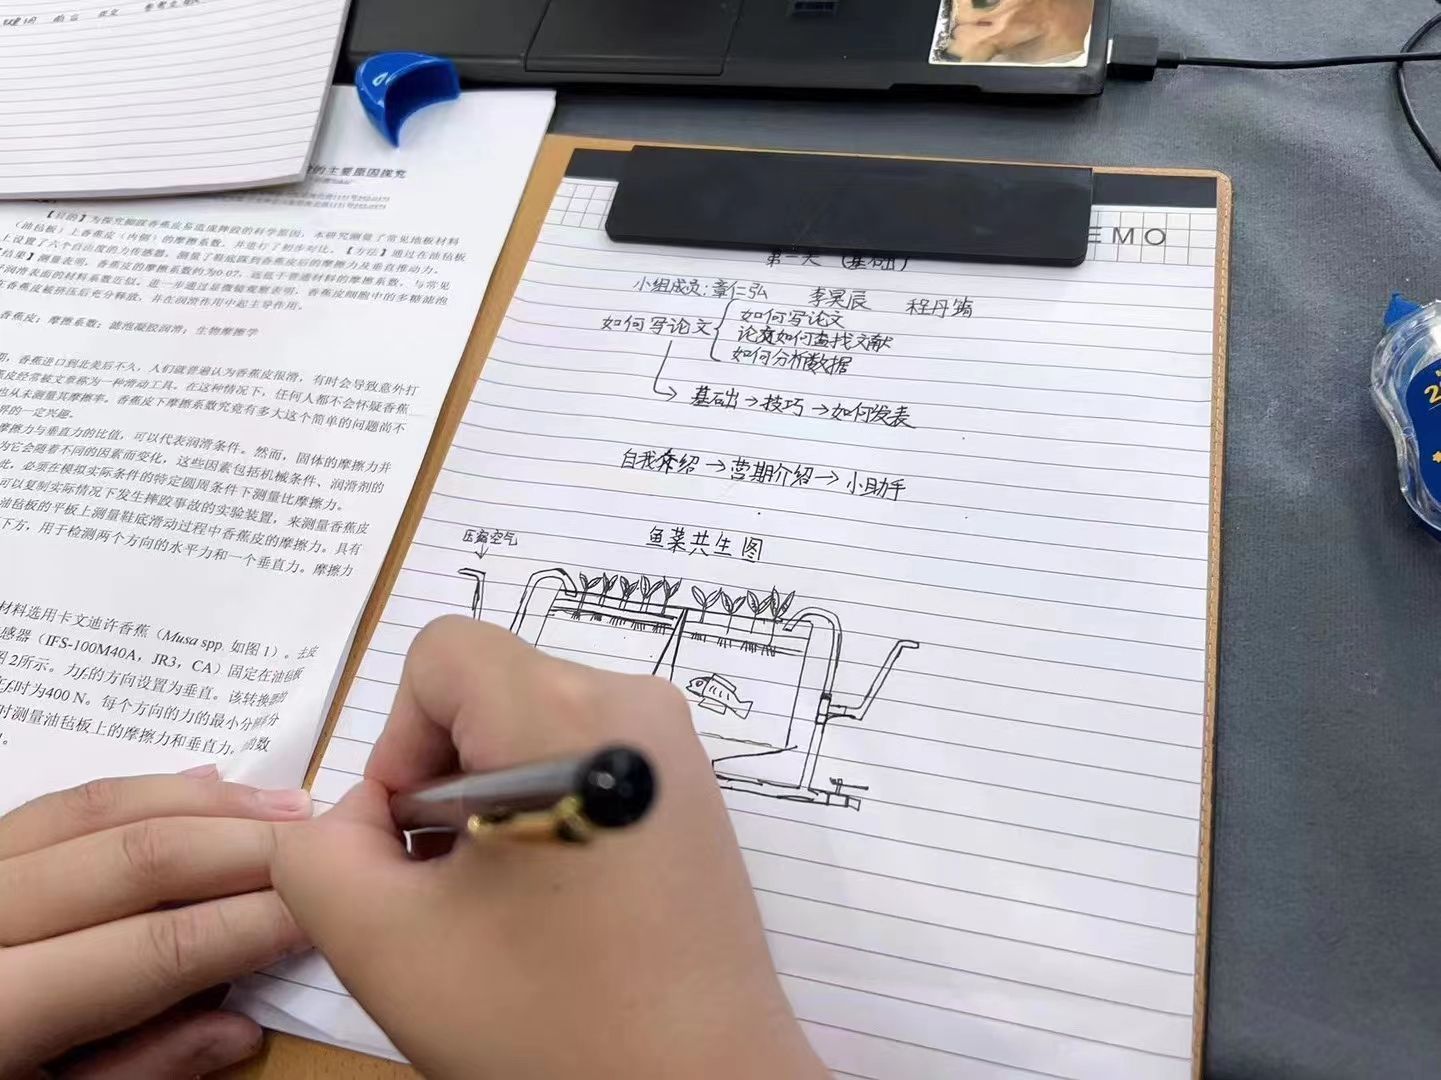 的主要原因探究
【目的】为探究脚踩香蕉皮易造成摔跤的科学原因，本研究测量了常见地板材料
（油毡板）上香蕉皮（内侧）的摩擦系数，并进行了初步对比。【方法】通过在油毡板
上设置了六个自由度的力传感器，测量了鞋底踩到香蕉皮后的摩擦力及垂直推动力。
结果】测量表明，香蕉皮的摩擦系数约为0.07，远低于普通材料的摩擦系数，与常见
润滑表面的材料系数近似。进一步通过显微镜观察表明，香蕉皮细胞中的多糖滤泡
香蕉皮被挤压后充分释放，并在润滑作用中起主导作用。
香蕉皮；摩擦系数；滤泡凝胶润滑；生物摩擦学
，香蕉进口到北美后不久，人们就普遍认为香蕉皮很滑，有时会导致意外打
皮经常被文章称为一种滑动工具。在这种情况下，任何人都不会怀疑香蕉
也从未测量其摩擦率。香蕉皮下摩擦系数究竟有多大这个简单的问题尚不
界的一定兴趣。
摩擦力与垂直力的比值，可以代表润滑条件。然而，固体的摩擦力并
为它会随着不同的因素而变化，这些因素包括机械条件、润滑剂的
此，必须在模拟实际条件的特定圆周条件下测量比摩擦力。
可以复制实际情况下发生摔跤事故的实验装置，来测量香蕉皮
油毡板的平板上测量鞋底滑动过程中香蕉皮的摩擦力。具有
下方，用于检测两个方向的水平力和一个垂直力。摩擦力
材料选用卡文迪许香蕉（Musa spp. 如图 1）。
感器（IFS-100M40A，JR3，CA）固定在油毡板
图 2所示。力f的方向设置为垂直。该转换器的
f时为400 N。每个方向的力的最小分辨
时测量油毡板上的摩擦力和垂直力。
EMO
第一天（基础）
小组成员：章仁弘 李昊辰 程丹
如何写论文
如何写论文
如何查找文献
如何分析数据
基础→技巧→如何发表
自我介绍→营期介绍→小助手
鱼菜共生图
压缩空气